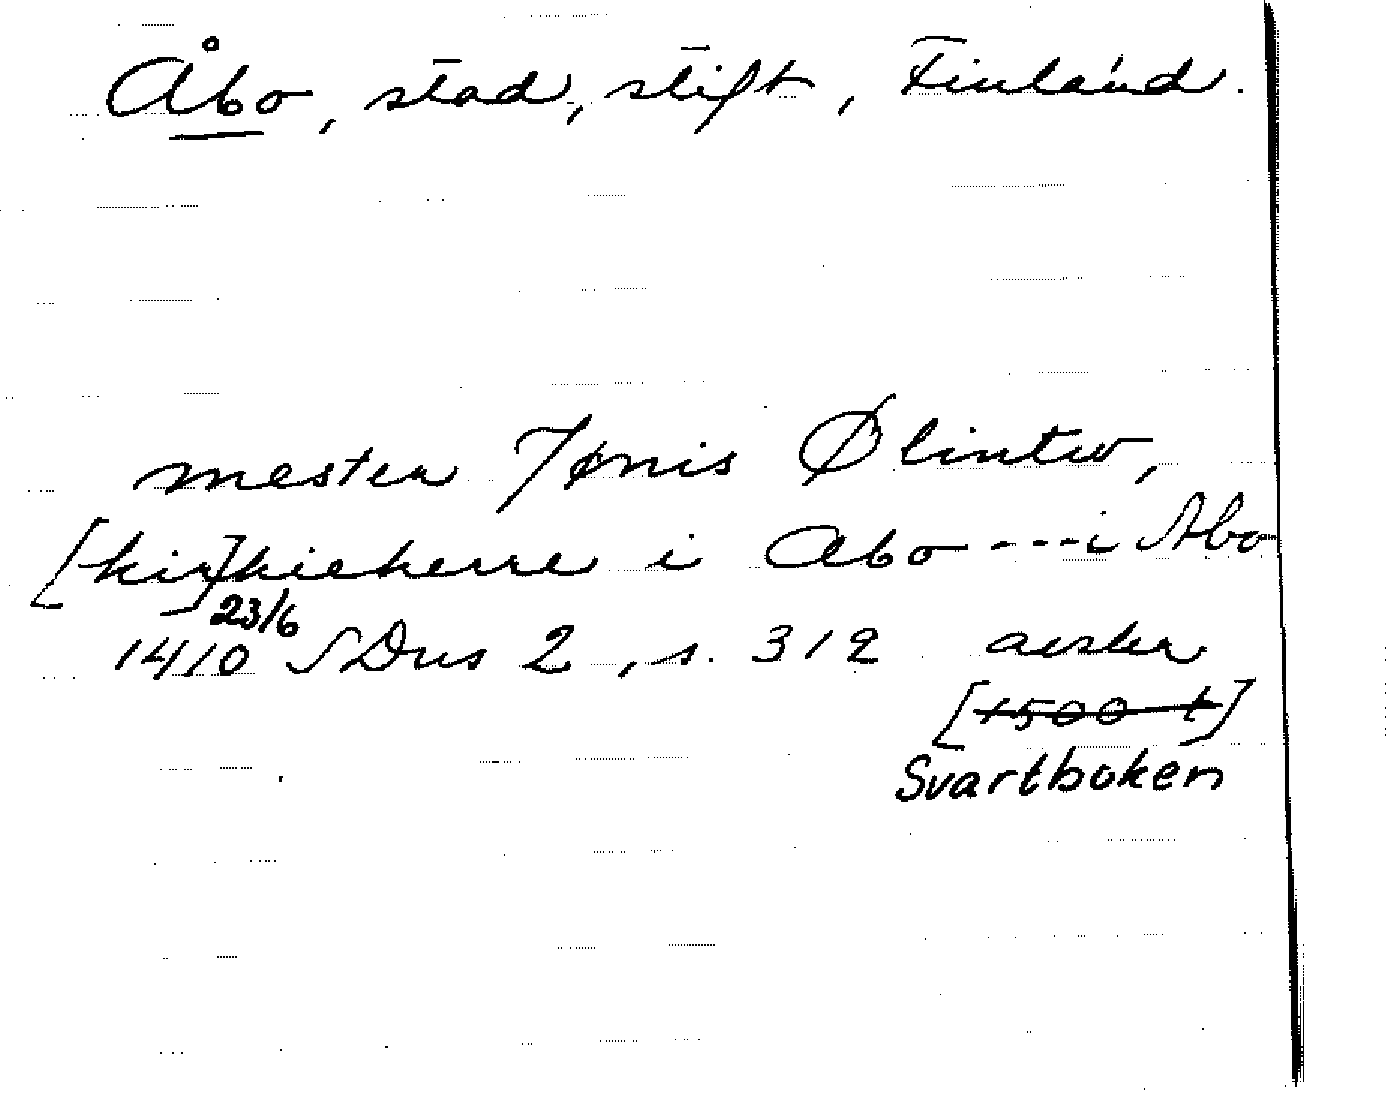 Åbo, stad, stift, Finland.
mester Jønis Ølintw,
[kir]kieherre i Abo ---i Abo
23/6
1410 SDns 2, s. 312 avskr
[1500 t]
Svartboken